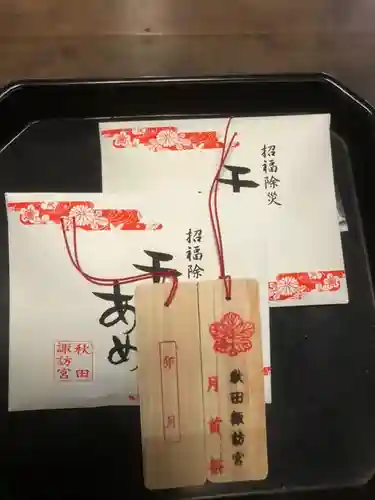 招福除災
千
招福除
千
あめ
秋田
諏訪宮
卯月
月首祭
秋田諏訪宮